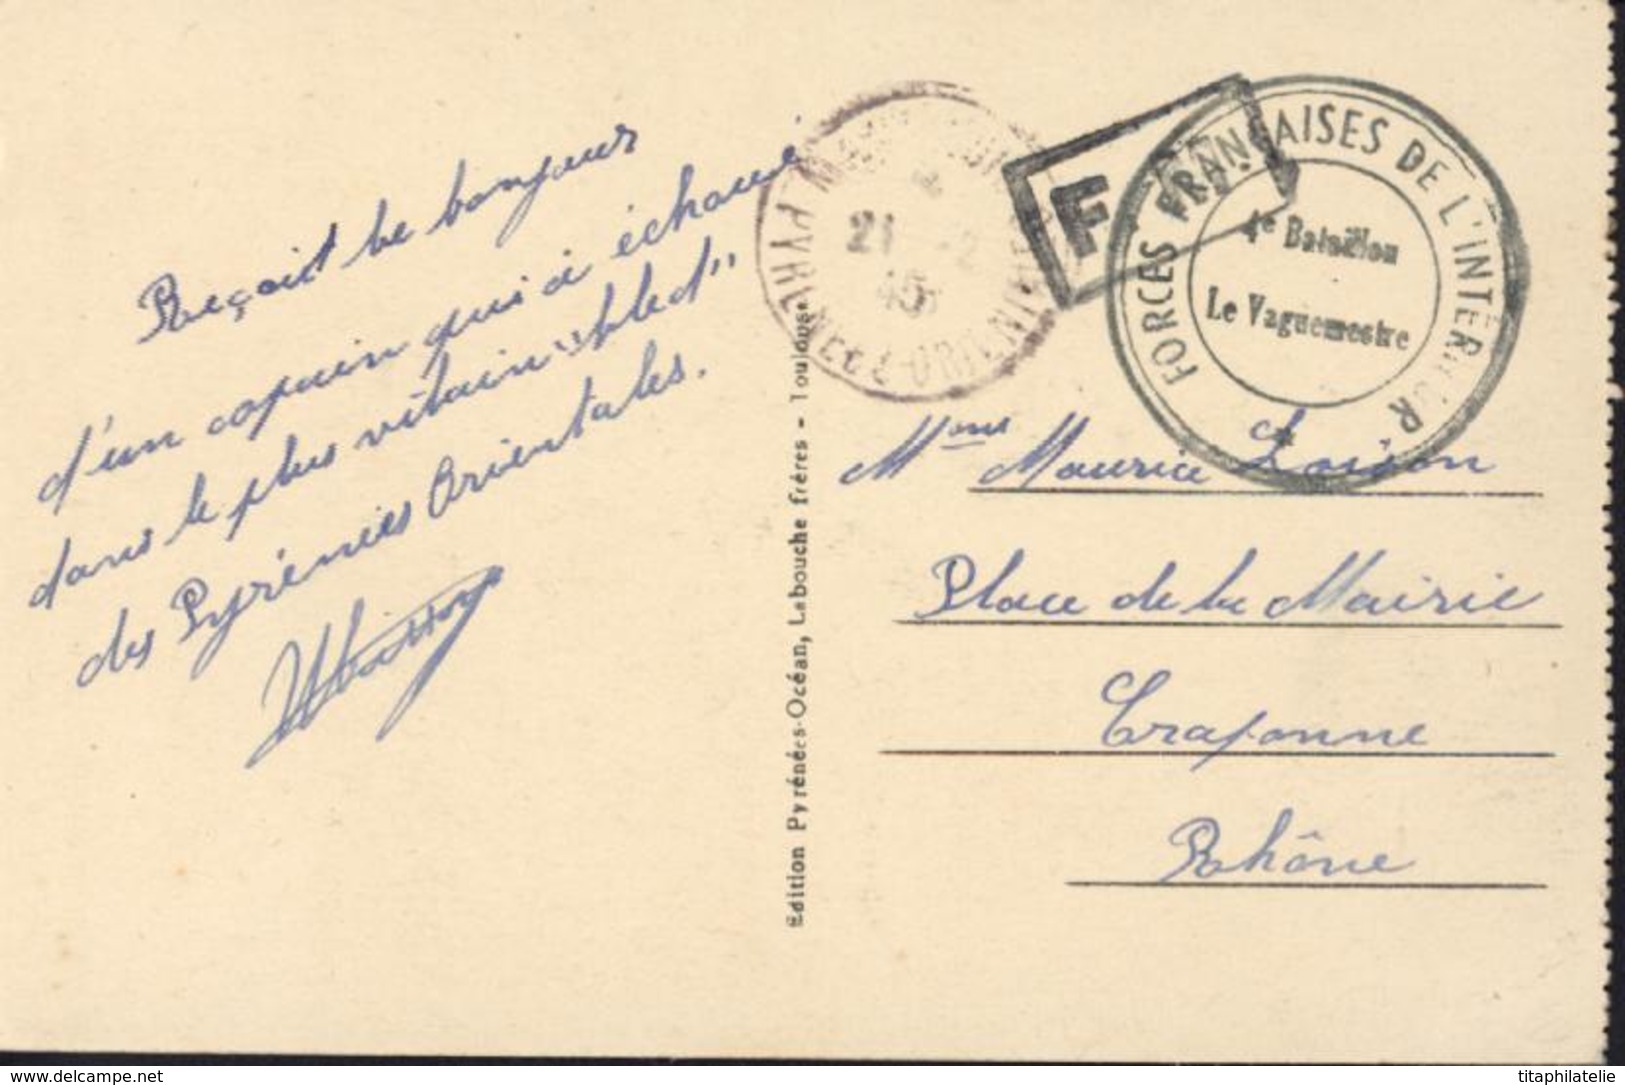 Reçoit le bonjour
d'un copain qui a échoué
dans le plus vilain "bled"
des Pyrénées Orientales.
21 -2
45
PYRÉNÉES-ORIENTALES
F
FORCES FRANÇAISES DE L'INTÉRIEUR
4e Bataillon
Le Vaguemestre
Édition Pyrénées-Océan, Labouche frères - Toulouse
Maurice
Place de la Mairie
Craponne
Rhône
www.delcampe.net
titaphilatelie